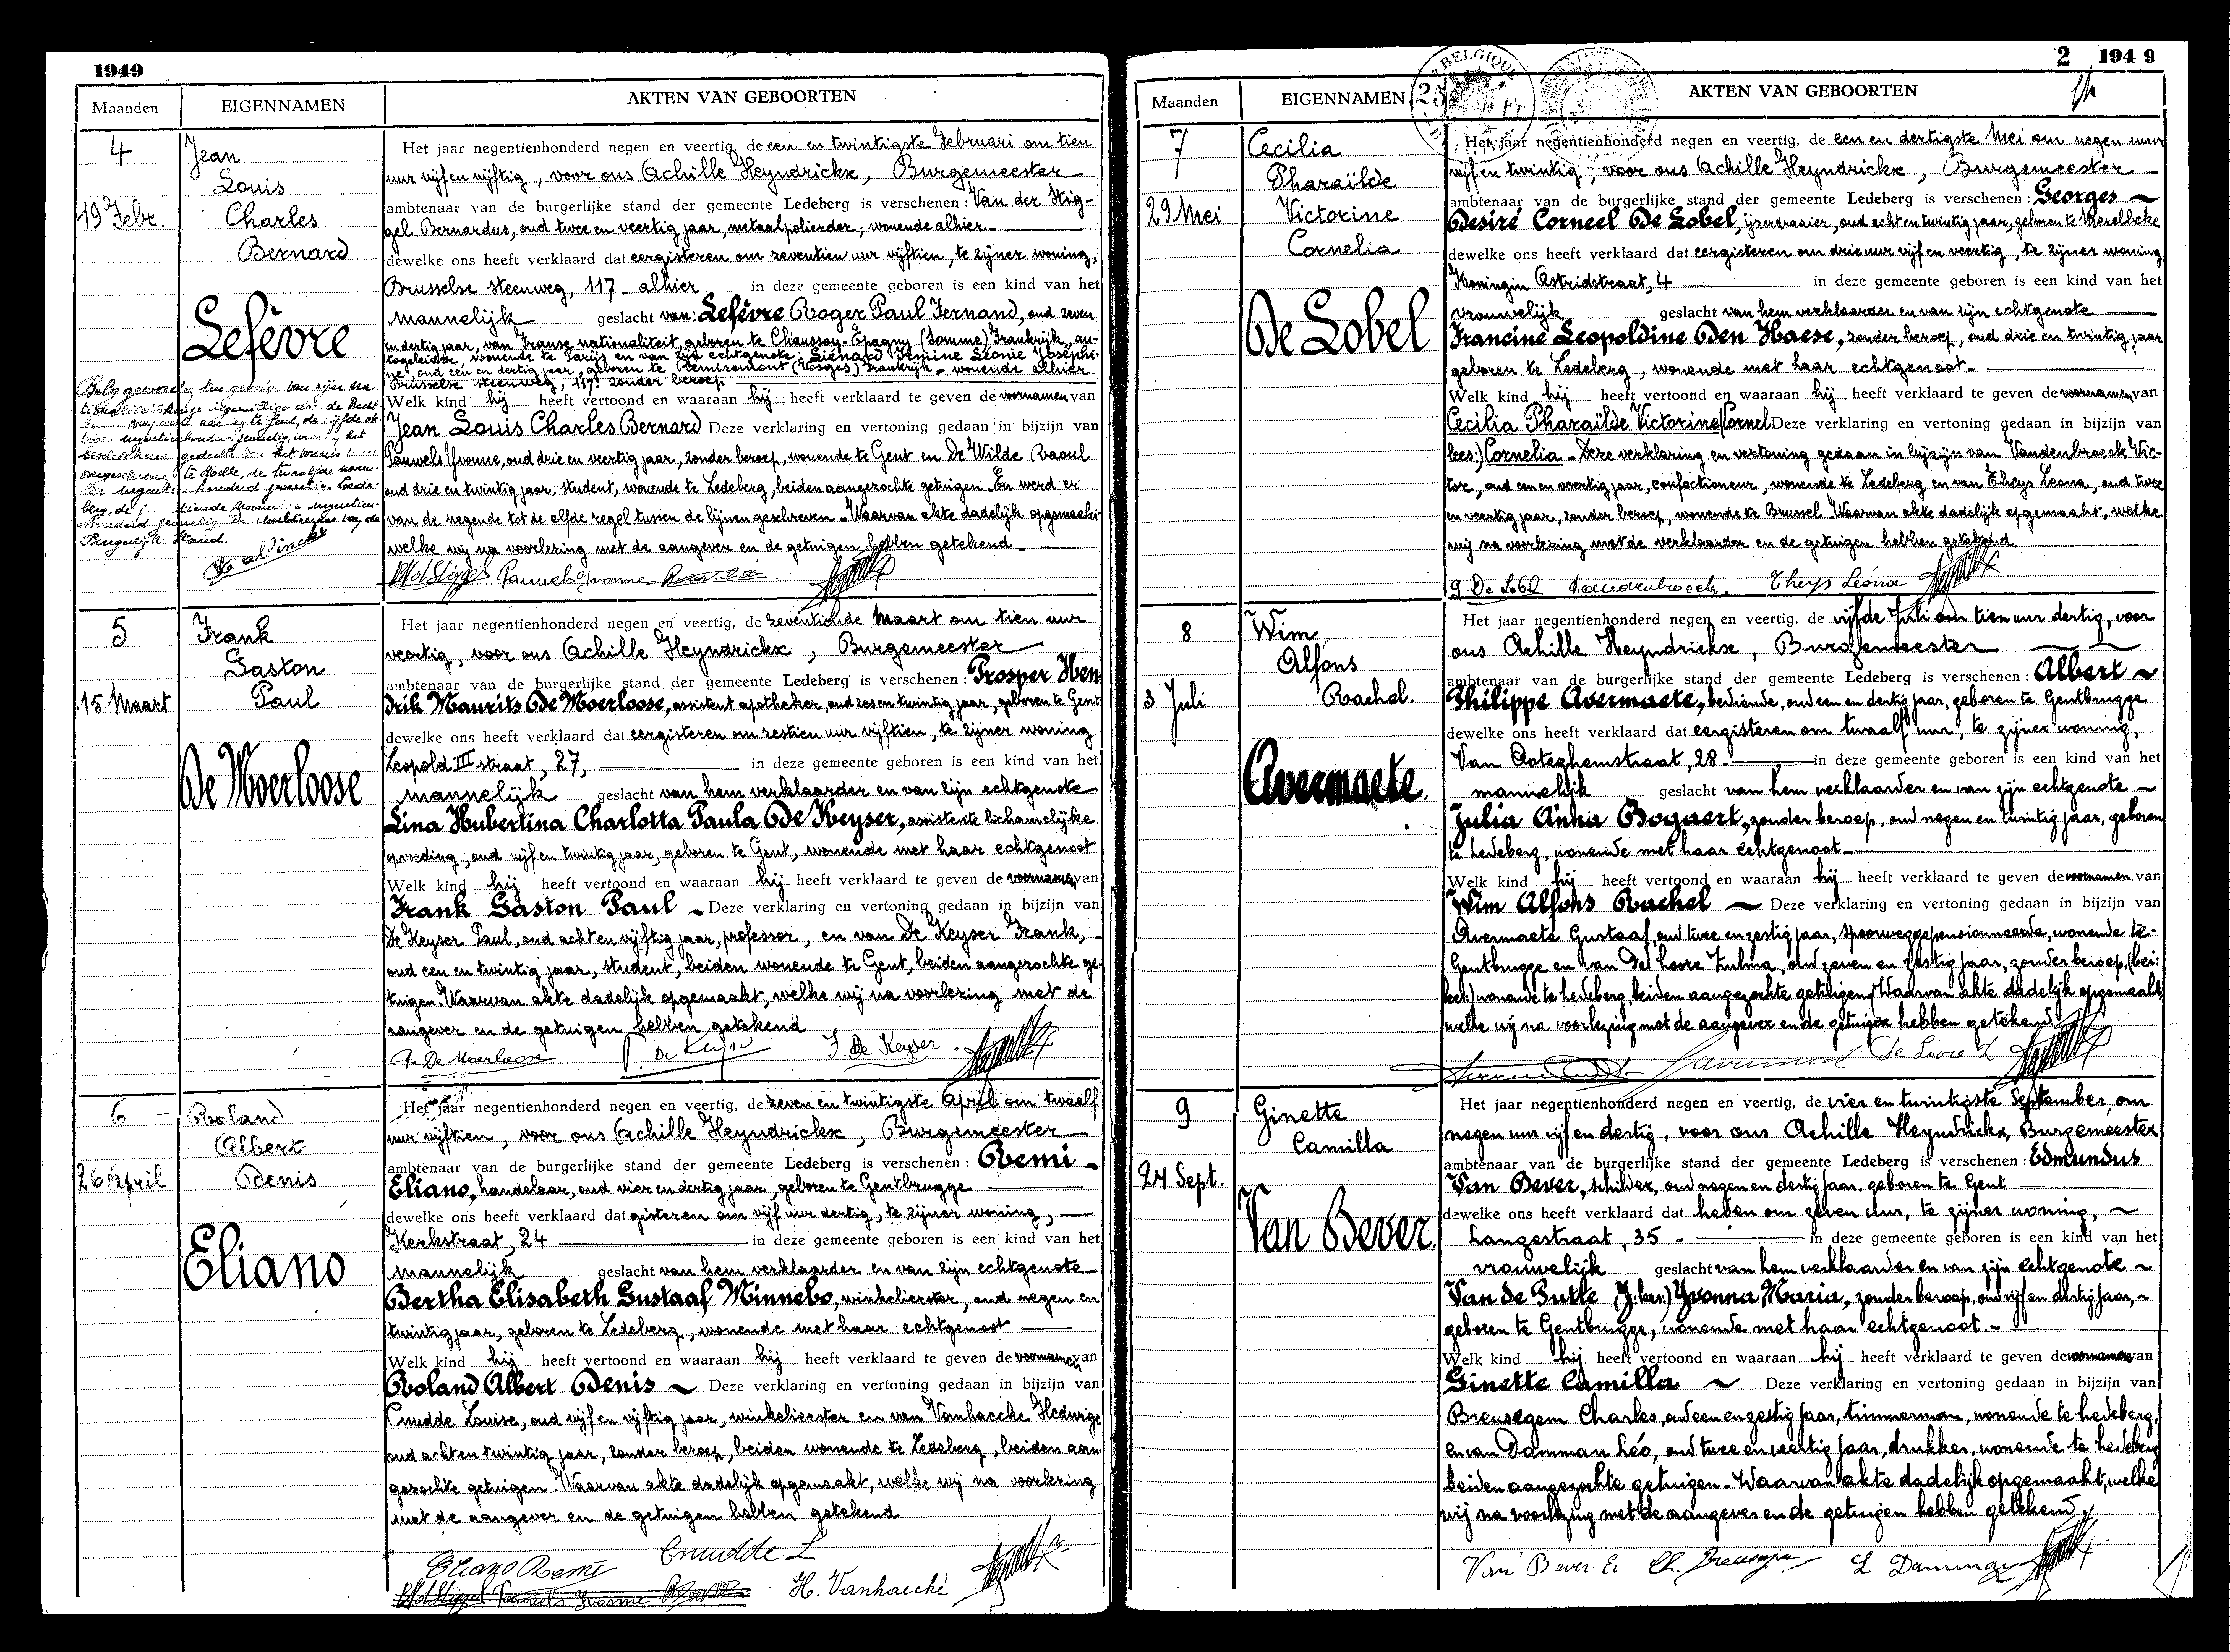 1949
Maanden EIGENNAMEN AKTEN VAN GEBOORTEN
4
19 Febr.
Jean
Louis
Charles
Bernard
Lefèvre
Belg geworden
Burgerlijke Stand.
Het jaar negentienhonderd negen en veertig, de een en twintigste Februari om tien
uur vijf en vijftig, voor ons Achille Heyndrickx, Burgemeester
ambtenaar van de burgerlijke stand der gemeente Ledeberg is verschenen: Van der Stig-
gel Bernardus, oud twee en veertig jaar, metaalpolierder, wonende alhier -
dewelke ons heeft verklaard dat eergisteren om zeventien uur vijftien, te zijner woning,
Brusselse steenweg, 117 - alhier in deze gemeente geboren is een kind van het
mannelijk geslacht van: Lefèvre Roger Paul Fernand, oud zeven
en dertig jaar, van Franse nationaliteit, geboren te Chaussoy-Epagny (Somme) Frankrijk, au-
togeleider, wonende te Parijs en van zijn echtgenote: Siénard Leonie Josephi-
ne, oud een en dertig jaar, geboren te Remiremont (Vosges) Frankrijk - wonende alhier
Brusselse steenweg, 117. zonder beroep
Welk kind hij heeft vertoond en waaraan hij heeft verklaard te geven de voornamen van
Jean Louis Charles Bernard Deze verklaring en vertoning gedaan in bijzijn van
Pauwels Yvonne, oud drie en veertig jaar, zonder beroep, wonende te Gent en De Wilde Raoul
oud drie en twintig jaar, student, wonende te Ledeberg, beiden aangezochte getuigen - En werd er
van de negende tot de elfde regel tussen de lijnen geschreven - Waarvan akte dadelijk opgemaakt
welke wij na voorlezing met de aangever en de getuigen hebben getekend -
Pauwels Yvonne
5
15 Maart
Frank
Gaston
Paul
De Moerloose
Het jaar negentienhonderd negen en veertig, de zeventiende Maart om tien uur
veertig, voor ons Achille Heyndrickx, Burgemeester
ambtenaar van de burgerlijke stand der gemeente Ledeberg is verschenen: Prosper Hen
drik Maurits De Moerloose, assistent apotheker, oud zes en twintig jaar, geboren te Gent
dewelke ons heeft verklaard dat eergisteren om zestien uur vijftien, te zijner woning
Leopold III straat, 27, in deze gemeente geboren is een kind van het
mannelijk geslacht van hem verklaarder en van zijn echtgenote
Lina Hubertina Charlotta Paula De Keyser, assistente lichamelijke
opvoeding, oud vijf en twintig jaar, geboren te Gent, wonende met haar echtgenoot
Welk kind hij heeft vertoond en waaraan hij heeft verklaard te geven de voornamen van
Frank Gaston Paul - Deze verklaring en vertoning gedaan in bijzijn van
De Keyser Paul, oud acht en vijftig jaar, professor, en van De Keyser Frank,
oud een en twintig jaar, student, beiden wonende te Gent, beiden aangezochte ge-
tuigen. Waarvan akte dadelijk opgemaakt, welke wij na voorlezing met de
aangever en de getuigen hebben getekend
De Moerloose P. De Keyser F. De Keyser
6
26 April
Roland
Albert
Denis
Eliano
Het jaar negentienhonderd negen en veertig, de zeven en twintigste April om twaalf
uur vijftien, voor ons Achille Heyndrickx, Burgemeester
ambtenaar van de burgerlijke stand der gemeente Ledeberg is verschenen: Remi -
Eliano, handelaar, oud vier en dertig jaar, geboren te Gentbrugge
dewelke ons heeft verklaard dat gisteren om vijf uur dertig, te zijner woning,
Kerkstraat, 24 in deze gemeente geboren is een kind van het
mannelijk geslacht van hem verklaarder en van zijn echtgenote
Bertha Elisabeth Gustaaf Minnebo, winkelierster, oud negen en
twintig jaar, geboren te Ledeberg, wonende met haar echtgenoot
Welk kind hij heeft vertoond en waaraan hij heeft verklaard te geven de voornamen van
Roland Albert Denis - Deze verklaring en vertoning gedaan in bijzijn van
Cnudde Louise, oud vijf en vijftig jaar, winkelierster en van Vanhaecke Hedwige
oud acht en twintig jaar, zonder beroep, beiden wonende te Ledeberg, beiden aan
gezochte getuigen. Waarvan akte dadelijk opgemaakt, welke wij na voorlezing
met de aangever en de getuigen hebben getekend
Eliano Remi Cnudde L
H. Vanhaecke
2 1949
Maanden EIGENNAMEN AKTEN VAN GEBOORTEN
BELGIQUE
7
29 Mei
Cecilia
Pharaïlde
Victorine
Cornelia
De Lobel
Het jaar negentienhonderd negen en veertig, de een en dertigste Mei om negen uur
vijf en twintig, voor ons Achille Heyndrickx, Burgemeester
ambtenaar van de burgerlijke stand der gemeente Ledeberg is verschenen: Georges
Desiré Corneel De Lobel, ijzerdraaier, oud acht en twintig jaar, geboren te Merelbeke
dewelke ons heeft verklaard dat eergisteren om drie uur vijf en veertig, te zijner woning
Koningin Astridstraat, 4 in deze gemeente geboren is een kind van het
vrouwelijk geslacht van hem verklaarder en van zijn echtgenote
Francine Leopoldine Den Haese, zonder beroep, oud drie en twintig jaar
geboren te Ledeberg, wonende met haar echtgenoot -
Welk kind hij heeft vertoond en waaraan hij heeft verklaard te geven de voornamen van
Cecilia Pharaïlde Victorine (Cornel Deze verklaring en vertoning gedaan in bijzijn van
lees:) Cornelia - Deze verklaring en vertoning gedaan in bijzijn van Vandenbroeck Vic-
tor, oud een en veertig jaar, confectioneur, wonende te Ledeberg en van Theys Leona, oud twee
en veertig jaar, zonder beroep, wonende te Brussel. Waarvan akte dadelijk opgemaakt, welke
wij na voorlezing met de verklaarder en de getuigen hebben getekend.
g. De Lobel Vandenbroeck. Theys Léona
8
3 Juli
Wim
Alfons
Rachel.
Avermaete.
Het jaar negentienhonderd negen en veertig, de vijfde Juli om tien uur dertig, voor
ons Achille Heyndrickx, Burgemeester
ambtenaar van de burgerlijke stand der gemeente Ledeberg is verschenen: Albert
Philippe Avermaete, bediende, oud een en dertig jaar, geboren te Gentbrugge
dewelke ons heeft verklaard dat eergisteren om twaalf uur, te zijner woning,
Van Ooteghemstraat, 28 - in deze gemeente geboren is een kind van het
mannelijk geslacht van hem verklaarder en van zijn echtgenote
Julia Anna Bogaert, zonder beroep, oud negen en twintig jaar, geboren
te Ledeberg, wonende met haar echtgenoot -
Welk kind hij heeft vertoond en waaraan hij heeft verklaard te geven de voornamen van
Wim Alfons Rachel Deze verklaring en vertoning gedaan in bijzijn van
Avermaete Gustaaf, oud twee en zestig jaar, spoorweggepensionneerde, wonende te -
Gentbrugge en van De Loore Zulma, oud zeven en zestig jaar, zonder beroep, (bei:
wonende te Ledeberg, beiden aangezochte getuigen. Waarvan akte dadelijk opgemaakt,
welke wij na voorlezing met de aangever en de getuigen hebben getekend
De Loore Z
9
24 Sept.
Ginette
Camilla
Van Bever
Het jaar negentienhonderd negen en veertig, de vier en twintigste September, om
negen uur vijf en dertig, voor ons Achille Heyndrickx, Burgemeester
ambtenaar van de burgerlijke stand der gemeente Ledeberg is verschenen: Edmundus
Van Bever, schilder, oud negen en dertig jaar, geboren te Gent
dewelke ons heeft verklaard dat heden om zeven uur, te zijner woning,
Langestraat, 35 - in deze gemeente geboren is een kind van het
vrouwelijk geslacht van hem verklaarder en van zijn echtgenote
Van de Putte Yvonna Maria, zonder beroep, oud vijf en dertig jaar, -
geboren te Gentbrugge, wonende met haar echtgenoot. -
Welk kind hij heeft vertoond en waaraan hij heeft verklaard te geven de voornamen van
Ginette Camilla Deze verklaring en vertoning gedaan in bijzijn van
Breusegem Charles, oud een en zestig jaar, timmerman, wonende te Ledeberg,
en van Damman Léo, oud twee en veertig jaar, drukker, wonende te Ledeberg
beiden aangezochte getuigen - Waarvan akte dadelijk opgemaakt, welke
wij na voorlezing met de aangever en de getuigen hebben getekend
Van Bever Ed. L Damman